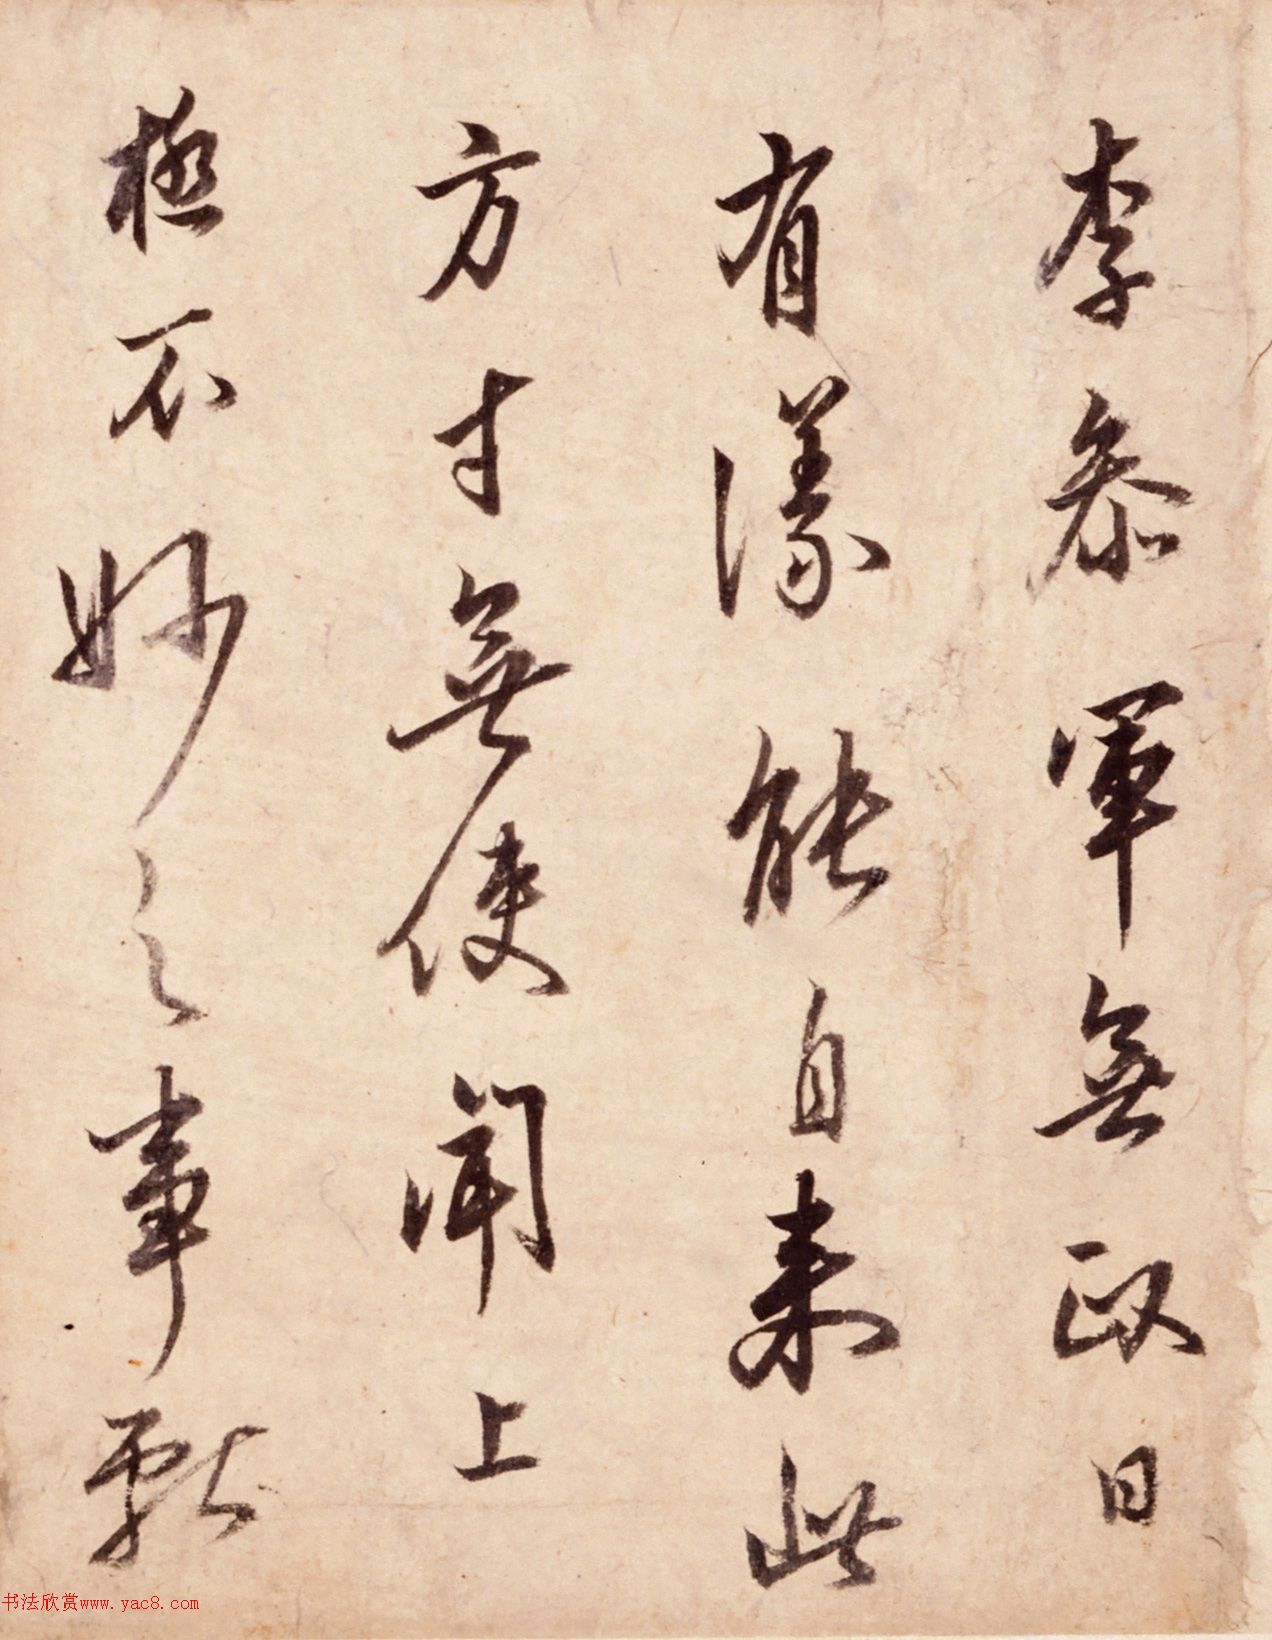 李叅軍無政日
有議能自来此
方寸無使聞上
極不妙之事
书法欣赏www.yac8.com